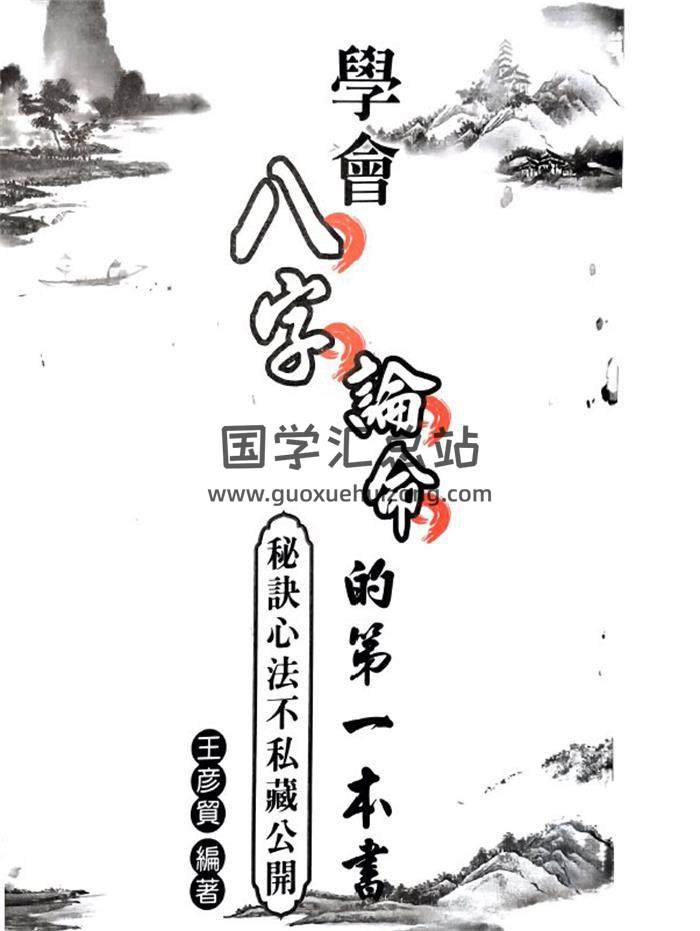 學會
八字
論命
的第一本書
秘訣心法不私藏公開
王彥貿 編著
国学汇总站
www.guoxuehuizong.com